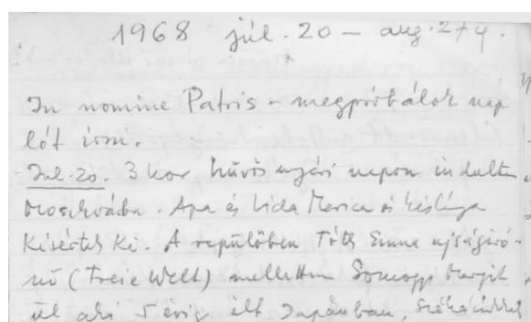 1968 júl. 20 – aug. 27-ig.
In nomine Patris – megpróbálok nap
lót írni.
Jul. 20. 3 kor hűvös nyári napon indultam
Moszkvába. Apa és Vida Marica és kislánya
kísértek ki. A repülőben Tóth Emma ujságíró-
nő (Freie Welt) mellettem Somogyi
ül aki 5 évig élt Japánban,